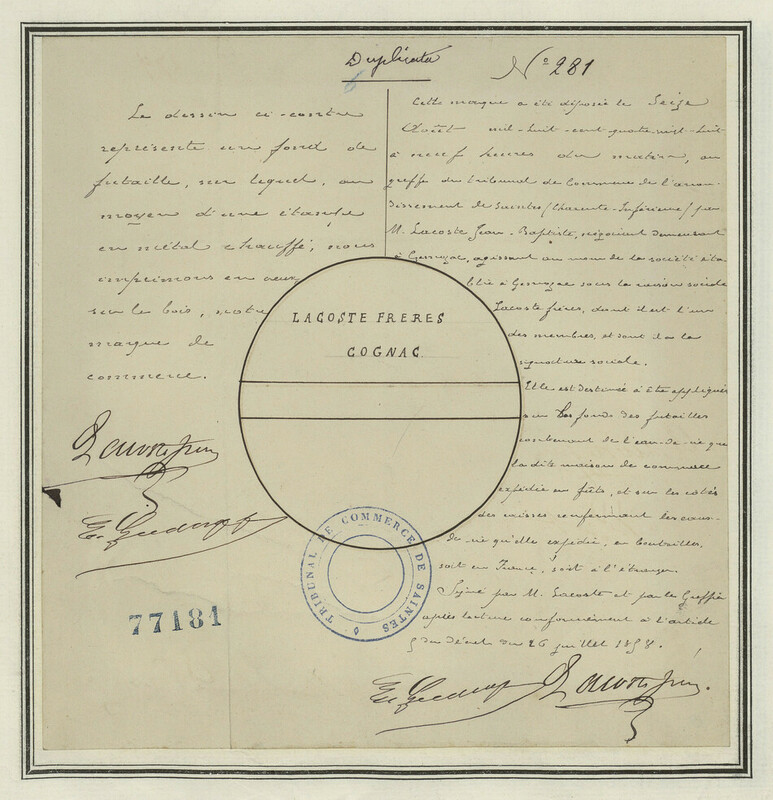 Duplicata
N° 281
Le dessin ci-contre
représente un fond de
futaille, sur lequel, au
moyen d'une étampe
en métal chauffé, nous
imprimons en creux
sur le bois, notre
marque de
commerce.
Cette marque a été déposée le Seize
Août mil-huit-cent quatre-vingt-huit
à neuf heures du matin, au
greffe du tribunal de Commerce de l'arron-
dissement de Saintes (Charente-Inférieure) par
M. Lacoste Jean-Baptiste, négociant demeurant
à Gemozac, agissant au nom de la société éta-
blie à Gemozac sous la raison sociale
Lacoste frères, dont il est l'un
des membres, et dont il a la
signature sociale.
Elle est destinée à être appliquée
sur les fonds des futailles
contenant de l'eau-de-vie que
la dite maison de commerce
expédie en fûts, et sur les côtés
des caisses renfermant les eaux-
de-vie qu'elle expédie, en bouteilles,
soit en France, soit à l'étranger.
Signé par M. Lacoste et par le Greffier
après lecture conformément à l'article
5 du décret du 26 juillet 1858.
LACOSTE FRERES
COGNAC
TRIBUNAL DE COMMERCE DE SAINTES
77181